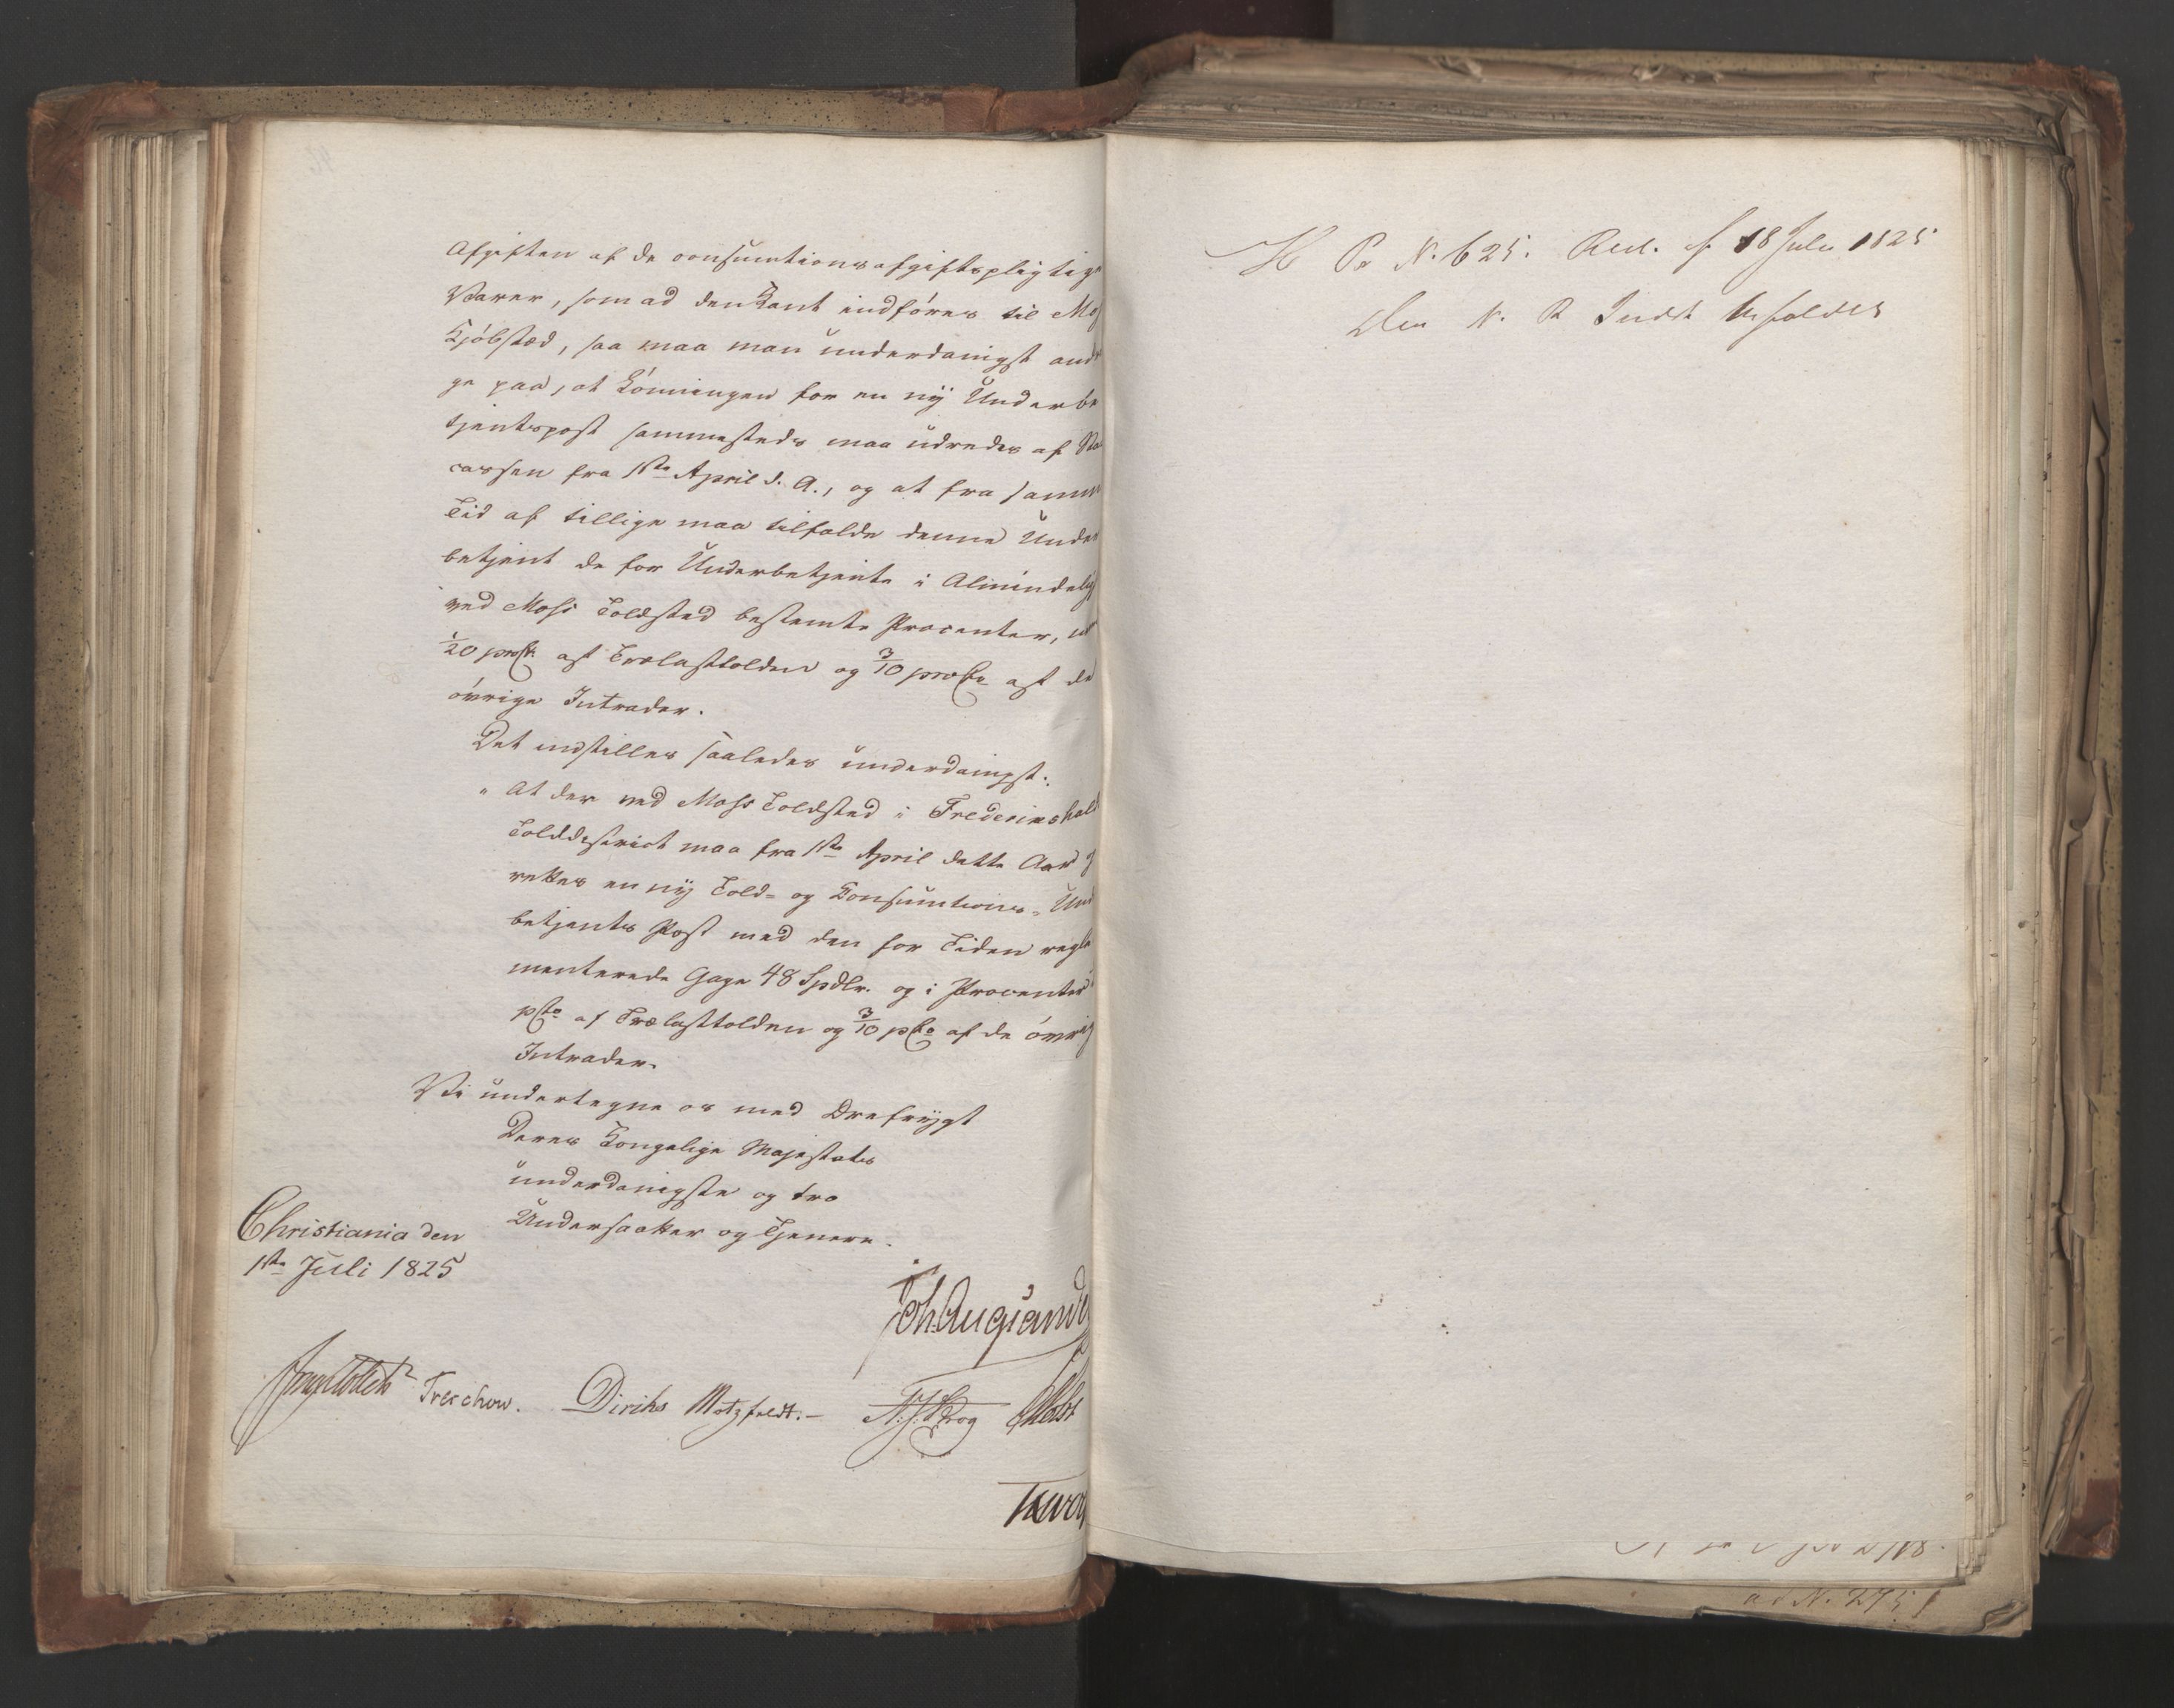 Afgiften af de consumtionsafgiftspligtige
Varer, som ad den Kant indføres til Mos
Kjøbstæd, saa maa man underdanigst andr
ge paa, at Lønningen for en ny Underbe
tjentspost sammesteds maa udredes af Sta
cassen fra 1ste April d. A., og at fra samm
Tid af tillige maa tilfalde denne Under
betjent de for Underbetjente i Almindelig
ved Moss Toldsted bestemte Procenter,
1/20 proCto af Trælasttolden og 3/10 proCto af de
øvrige Intrader.
Det indstilles saaledes underdanigst:
" At der ved Moss Toldsted i Fredericshald
Tolddistrict maa fra 1ste April dette Aar
rettes en ny Told- og Consumtions-Und
betjents Post med den for Tiden regle
menterede Gage 48 Spdlr. og i Procenter
pCto af Trælasttolden og 3/10 pCto af de øvrig
Intrader.
Vi undertegne os med Ærefrygt
Deres Kongelige Majestæts
underdanigste og tro
Undersaatter og Tjenere.
Christiania den
1ste Juli 1825
Joh. Aug. Sande
Jonas Collett Treschow. Diriks Motzfeldt.- N. J. Krog Holst
PR N. 625. Res. af 18 Juli 1825
Den N. R Indst bifaldes
ad N. 275